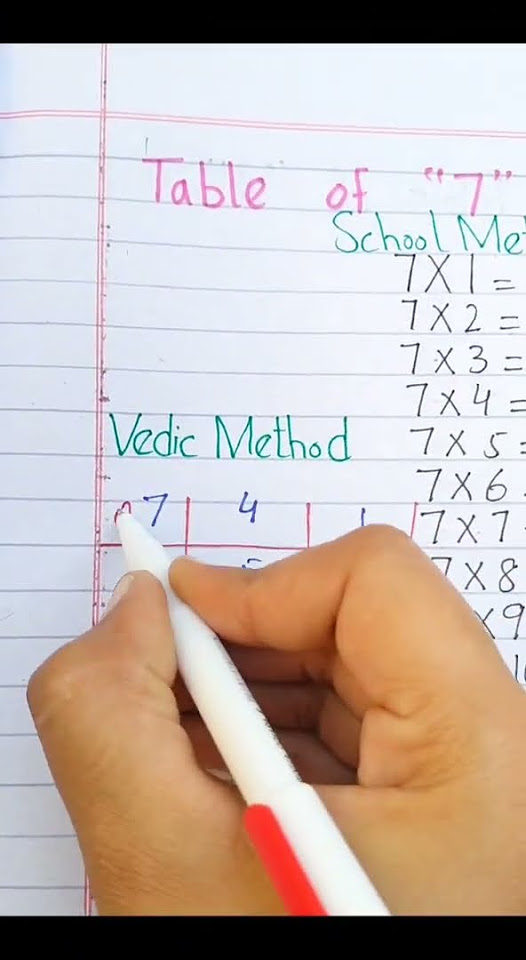 Table of "7"
School Me
7X1=
7X2=
7X3=
7X4=
7X5=
7X6
7X7
7X8
X9
Vedic Method
7 4 1